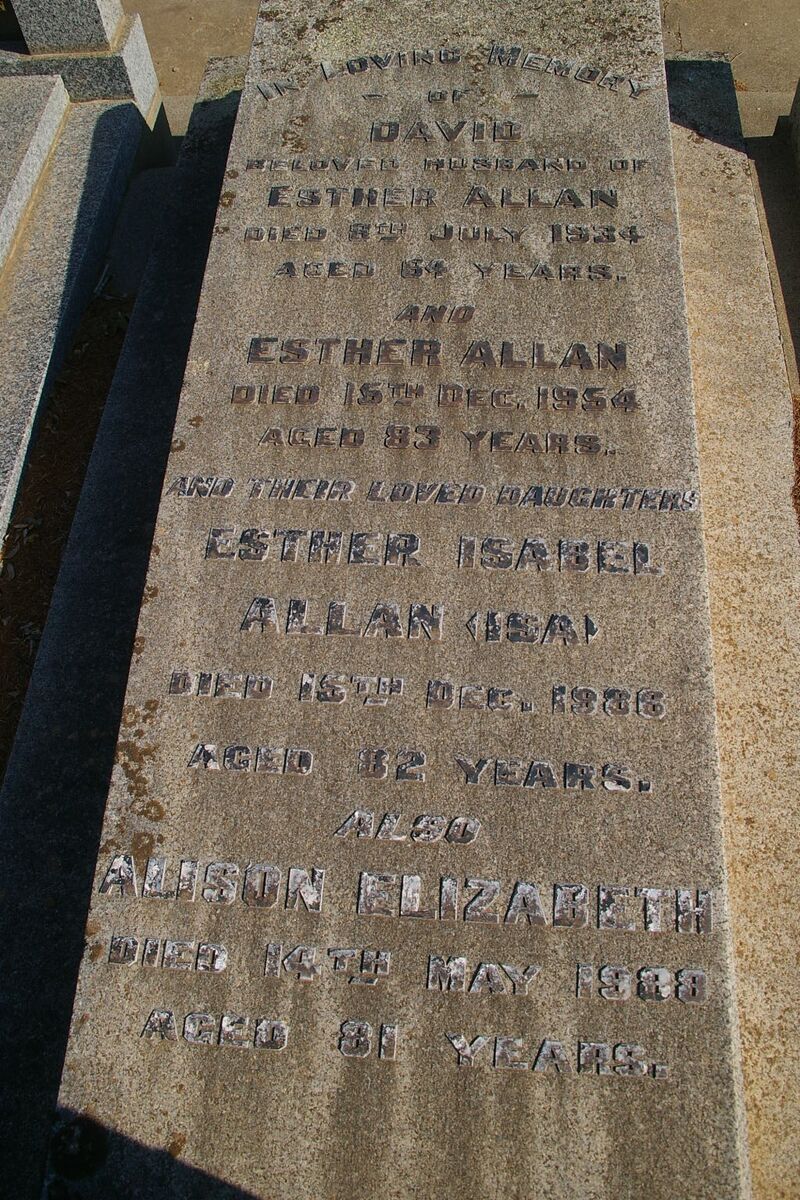 IN LOVING MEMORY
- OF -
DAVID
BELOVED HUSBAND OF
ESTHER ALLAN
DIED 8TH JULY 1934
AGED 64 YEARS.
AND
ESTHER ALLAN
DIED 15TH DEC. 1954
AGED 83 YEARS.
AND THEIR LOVED DAUGHTERS
ESTHER ISABEL
ALLAN (ISA)
DIED 15TH DEC. 1986
AGED 82 YEARS.
ALSO
ALISON ELIZABETH
DIED 14TH MAY 1988
AGED 81 YEARS.